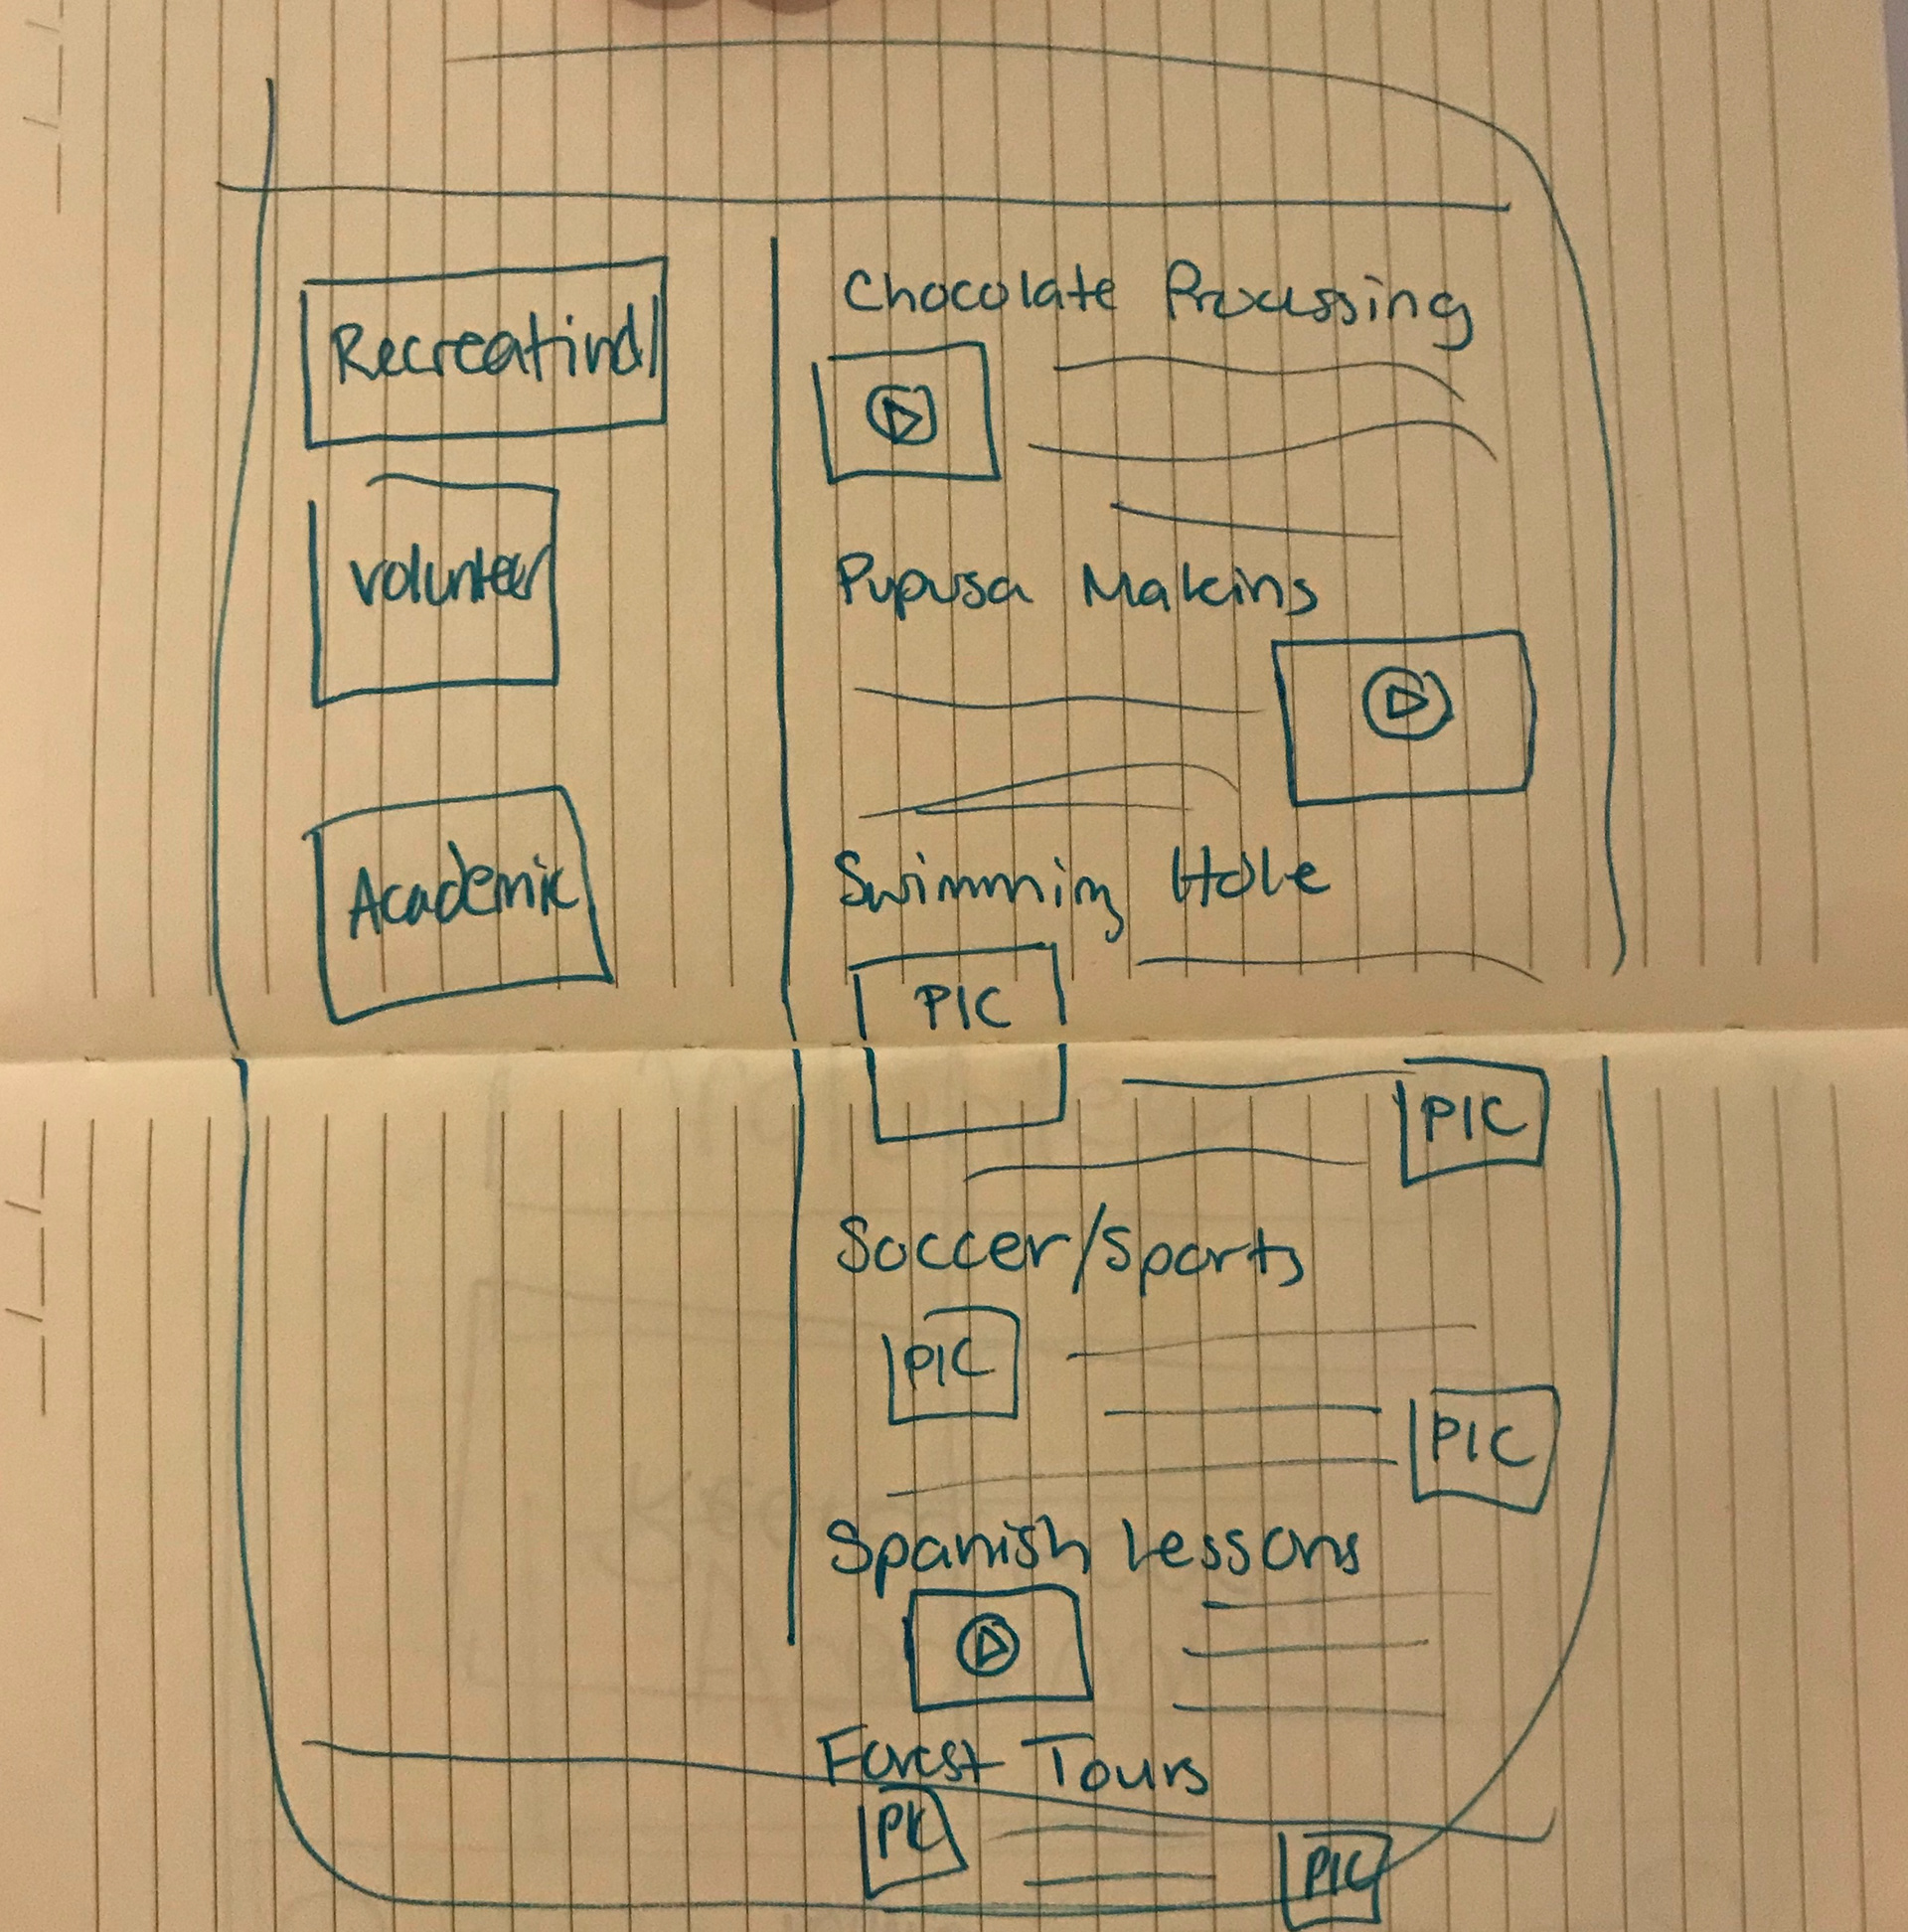 Recreational
Volunteer
Academic
Chocolate Processing
Pupusa Making
Swimming Hole
PIC
PIC
Soccer/Sports
PIC
PIC
Spanish Lessons
Forest Tours
PIC
PIC